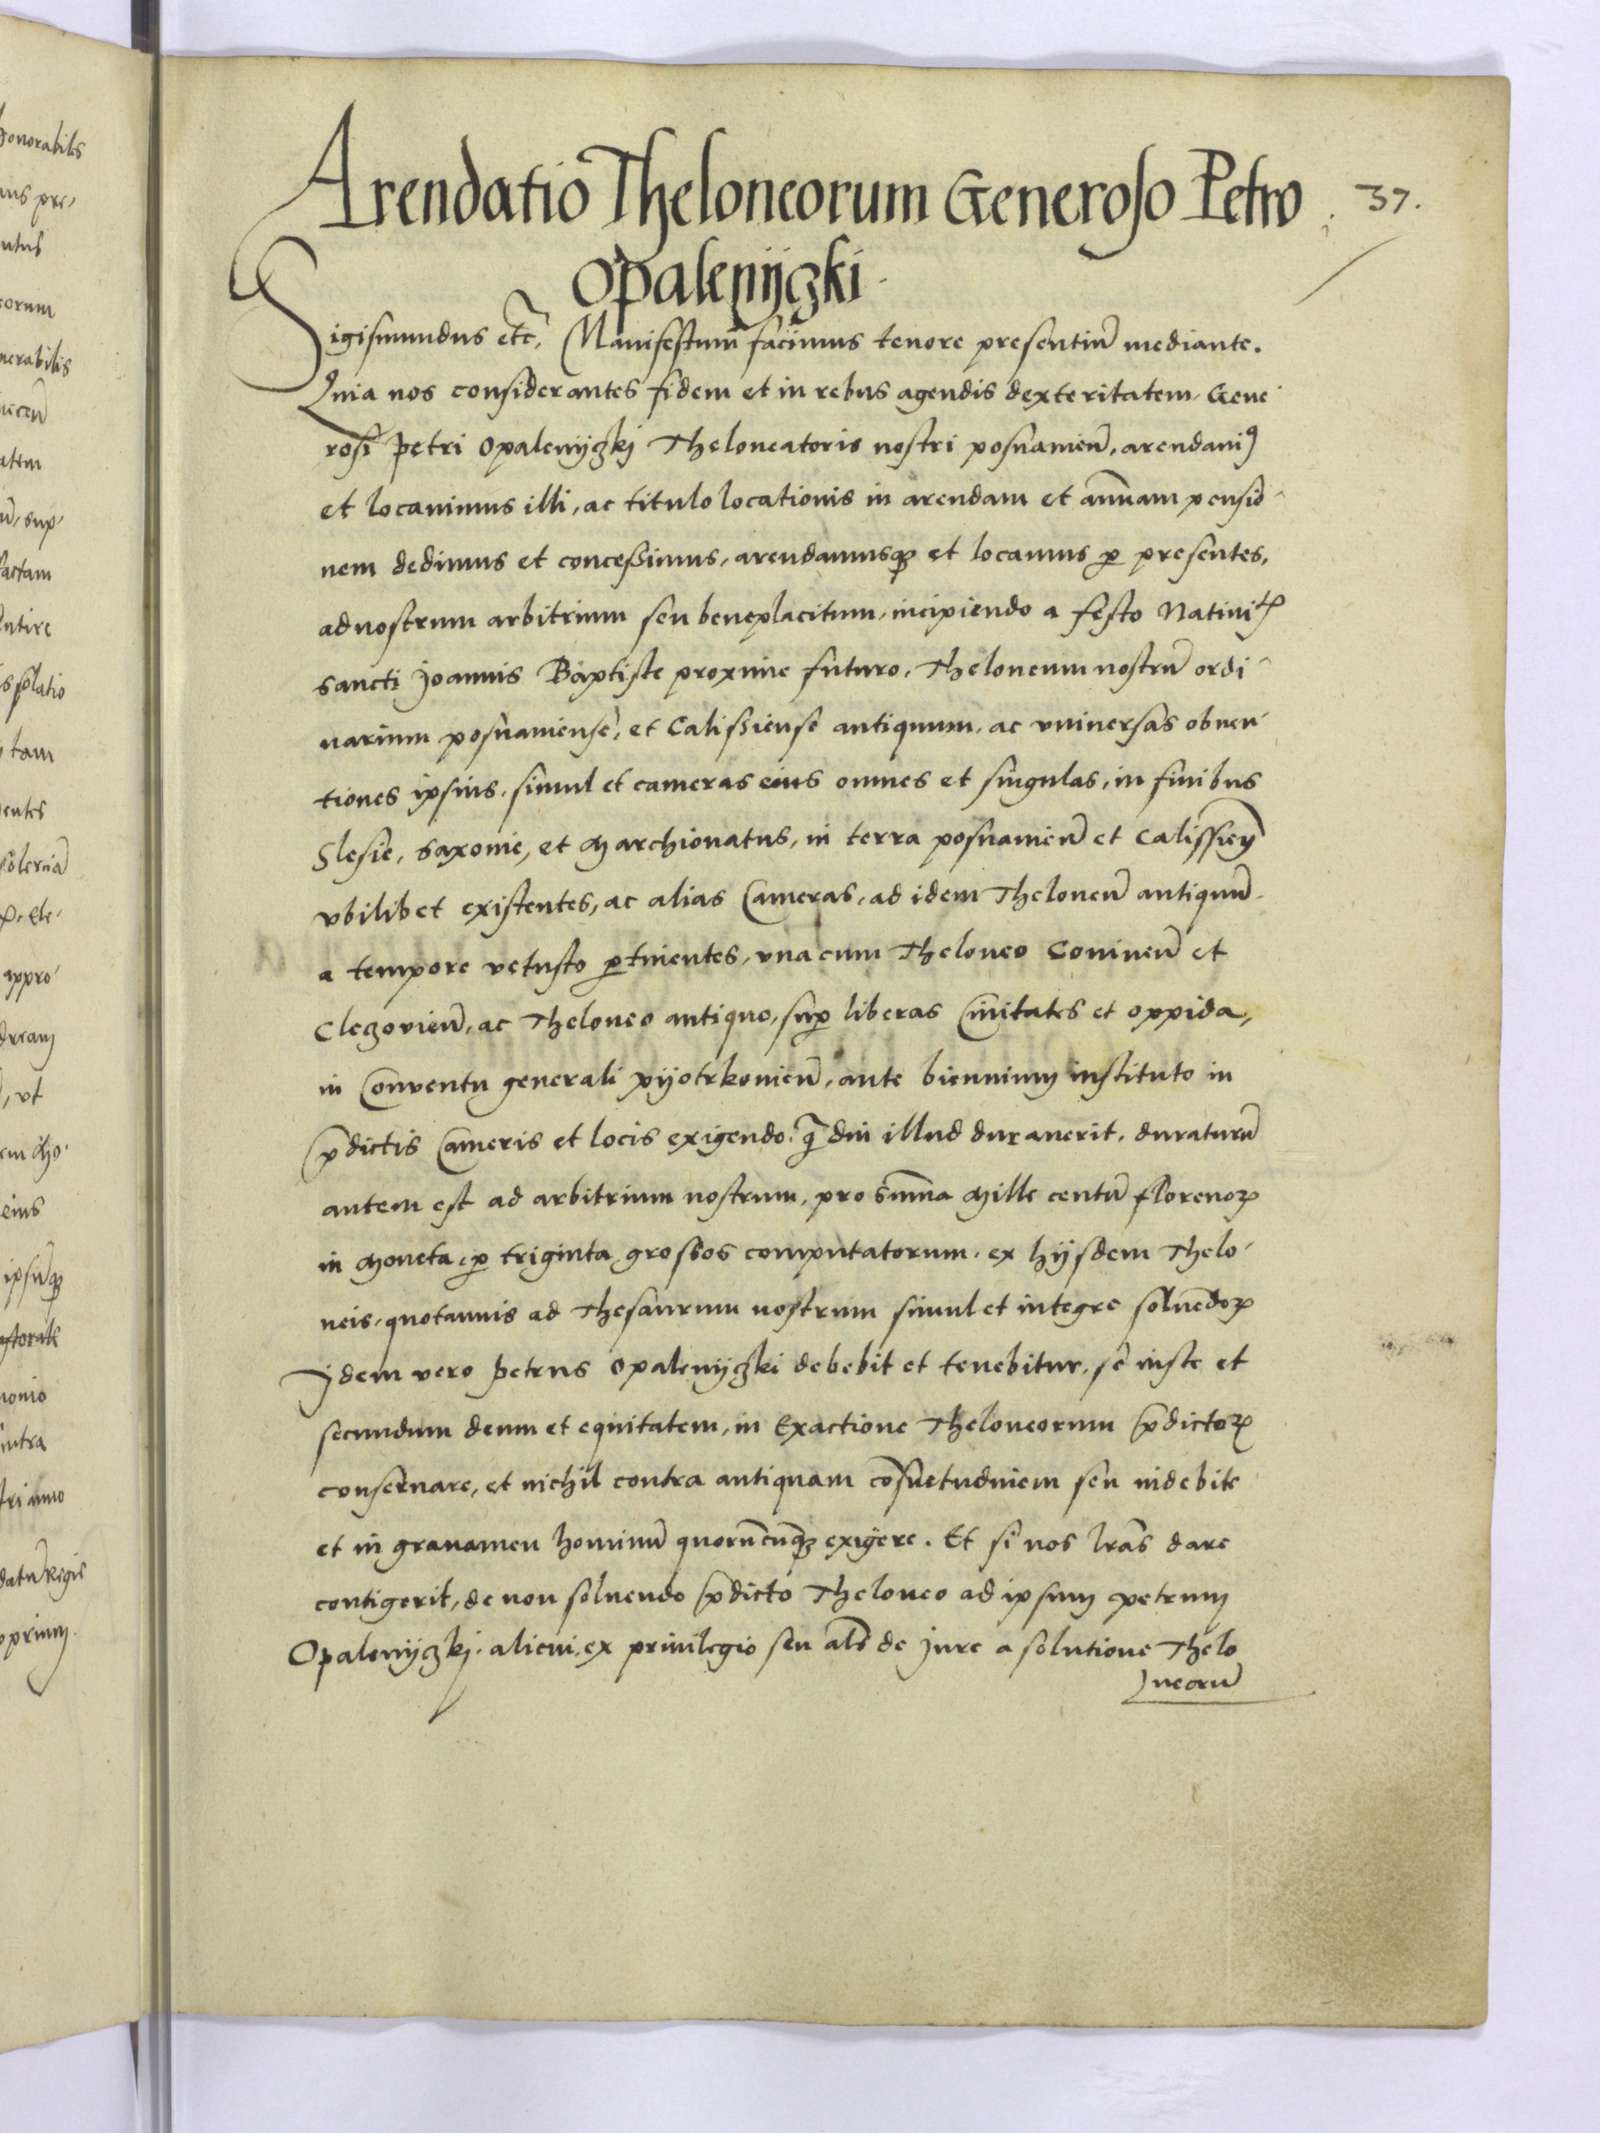 Arendatio Theloneorum Generoso Petro
37.
Opalenijczki.
Sigismundus etc̃. Manifestum facimus tenore presentiũ mediante.
Quia nos considerantes fidem et in rebus agendis dexteritatem Gene
rosi Petri Opalenijczkj Theloneatoris nostri posnanieñ, arendauiꝰ
et locauimus illi, ac titulo locationis in arendam et annuam pensio
nem dedimus et concessimus, arendamusqꝫ et locamus ꝑ presentes,
ad nostrum arbitrium seu beneplacitum, incipiendo a festo Natiuitꝭ
sancti Joannis Baptiste proxime futuro, Theloneum nostrũ ordi
narium posnaniense, et Calissiense antiquum, ac vniuersas obuen
tiones ipsius, simul et cameras eius omnes et singulas, in finibus
Slesie, Saxonie, et Marchionatus, in terra posnanieñ et Calissieñ
vbilibet existentes, ac alias Cameras, ad idem Theloneũ antiquũ
a tempore vetusto ꝑtinentes, vna cum Theloneo Conineñ et
Cleczovieñ, ac Theloneo antiquo, suꝑ liberas Ciuitates et oppida,
in Conventu generali pijotrkovieñ, ante biennium instituto in
p̃dictis Cameris et locis exigendo, q̃ diu illud durauerit, duraturũ
autem est ad arbitrium nostrum, pro summa Mille centũ florenoꝝ
in Moneta, ꝑ triginta grossos computatorum, ex hijsdem Thelo
neis, quotannis ad Thesaurum nostrum simul et integre soluẽdoꝝ
Jdem vero Petrus Opalenijczki debebit et tenebitur, se iuste et
secundum deum et equitatem, in Exactione Theloneorum p̃dictoꝝ
conseruare, et nichil contra antiquam cõsuetudinem seu indebite
et in grauamen hominũ quorũcũqꝫ exigere. Et si nos lr̃as dare
contigerit, de non soluendo p̃dicto Theloneo ad ipsum petrum
Opalenijczkj, alicui, ex priuilegio seu als̃ de Jure a solutione Thelo
neorũ